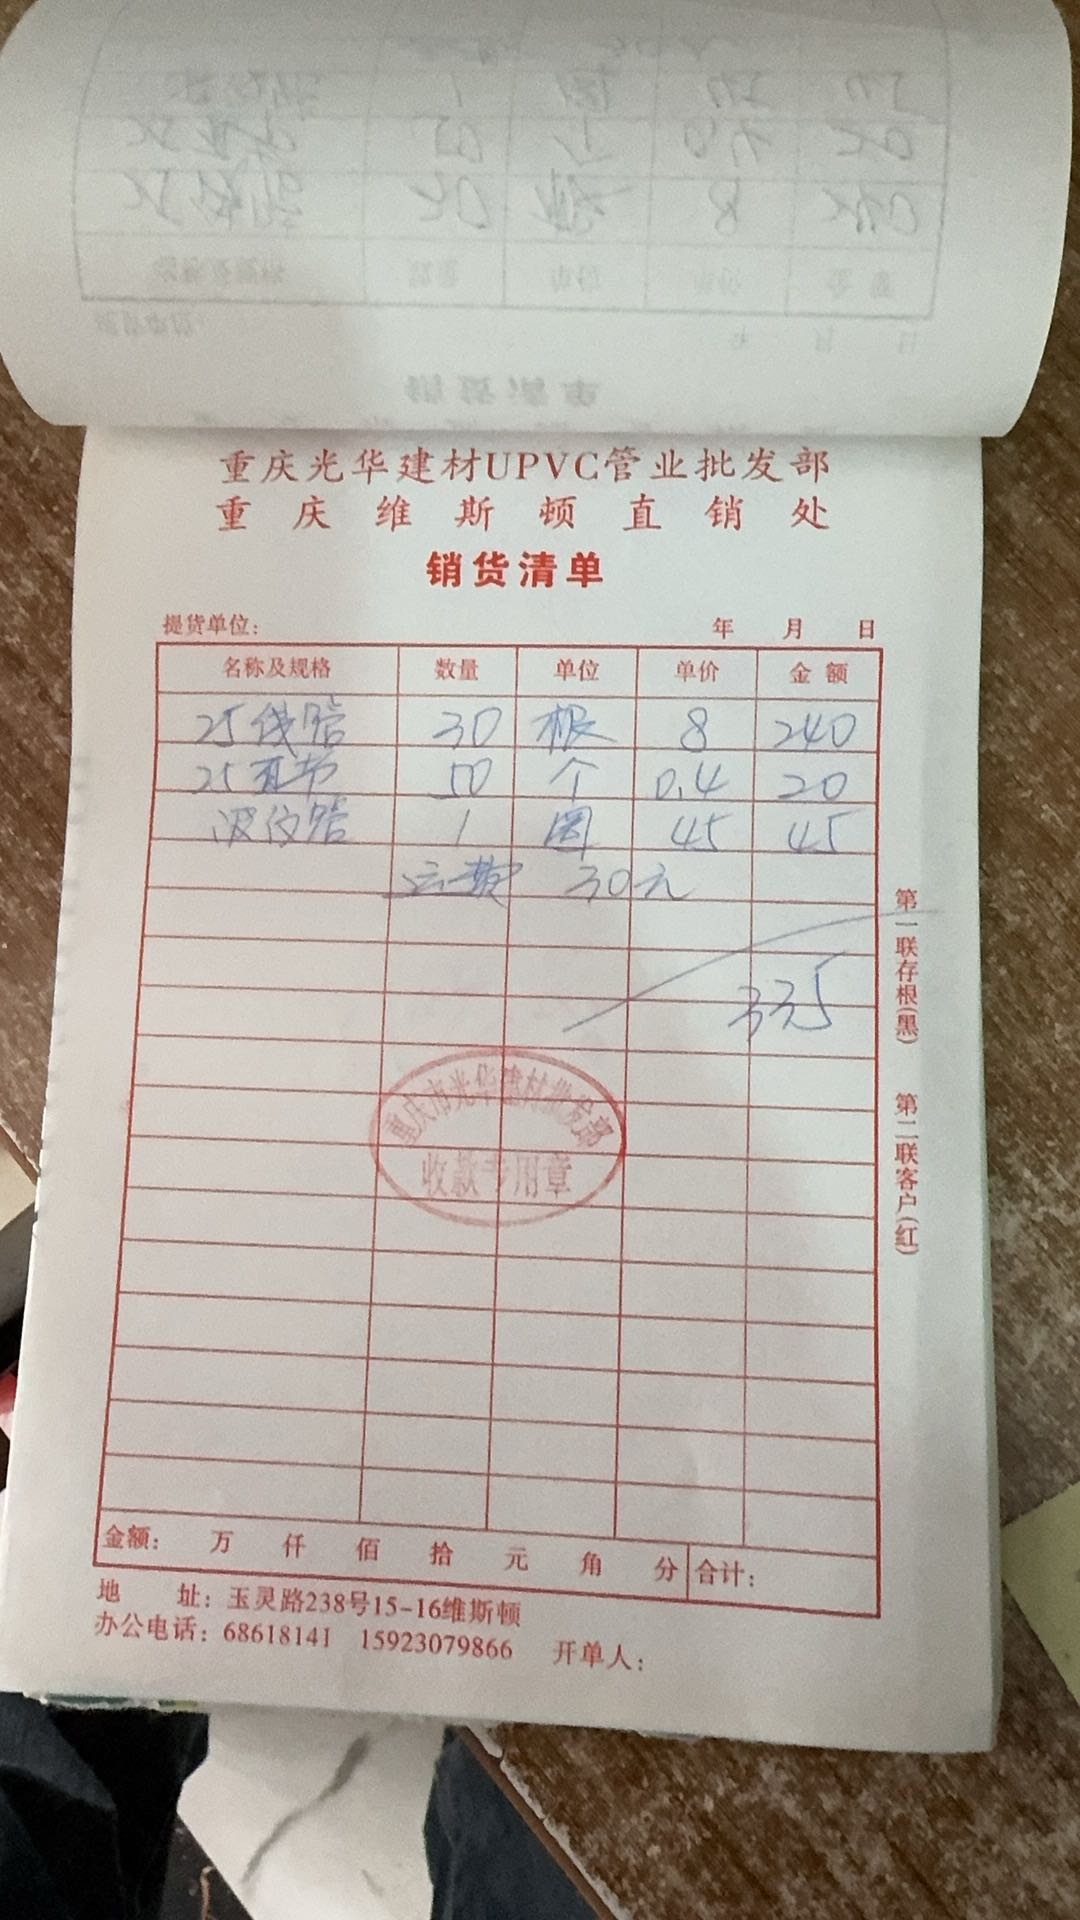 重庆光华建材UPVC管业批发部
重庆维斯顿直销处
销货清单
提货单位： 年 月 日
名称及规格 数量 单位 单价 金额
25线管 30 根 8 240
25直节 50 个 0.4 20
波纹管 1 圈 45 45
运费 30元
335
重庆市光华建材批发部
收款专用章
第一联存根(黑) 第二联客户(红)
金额： 万 仟 佰 拾 元 角 分 合计：
地 址：玉灵路238号15-16维斯顿
办公电话：68618141 15923079866 开单人：